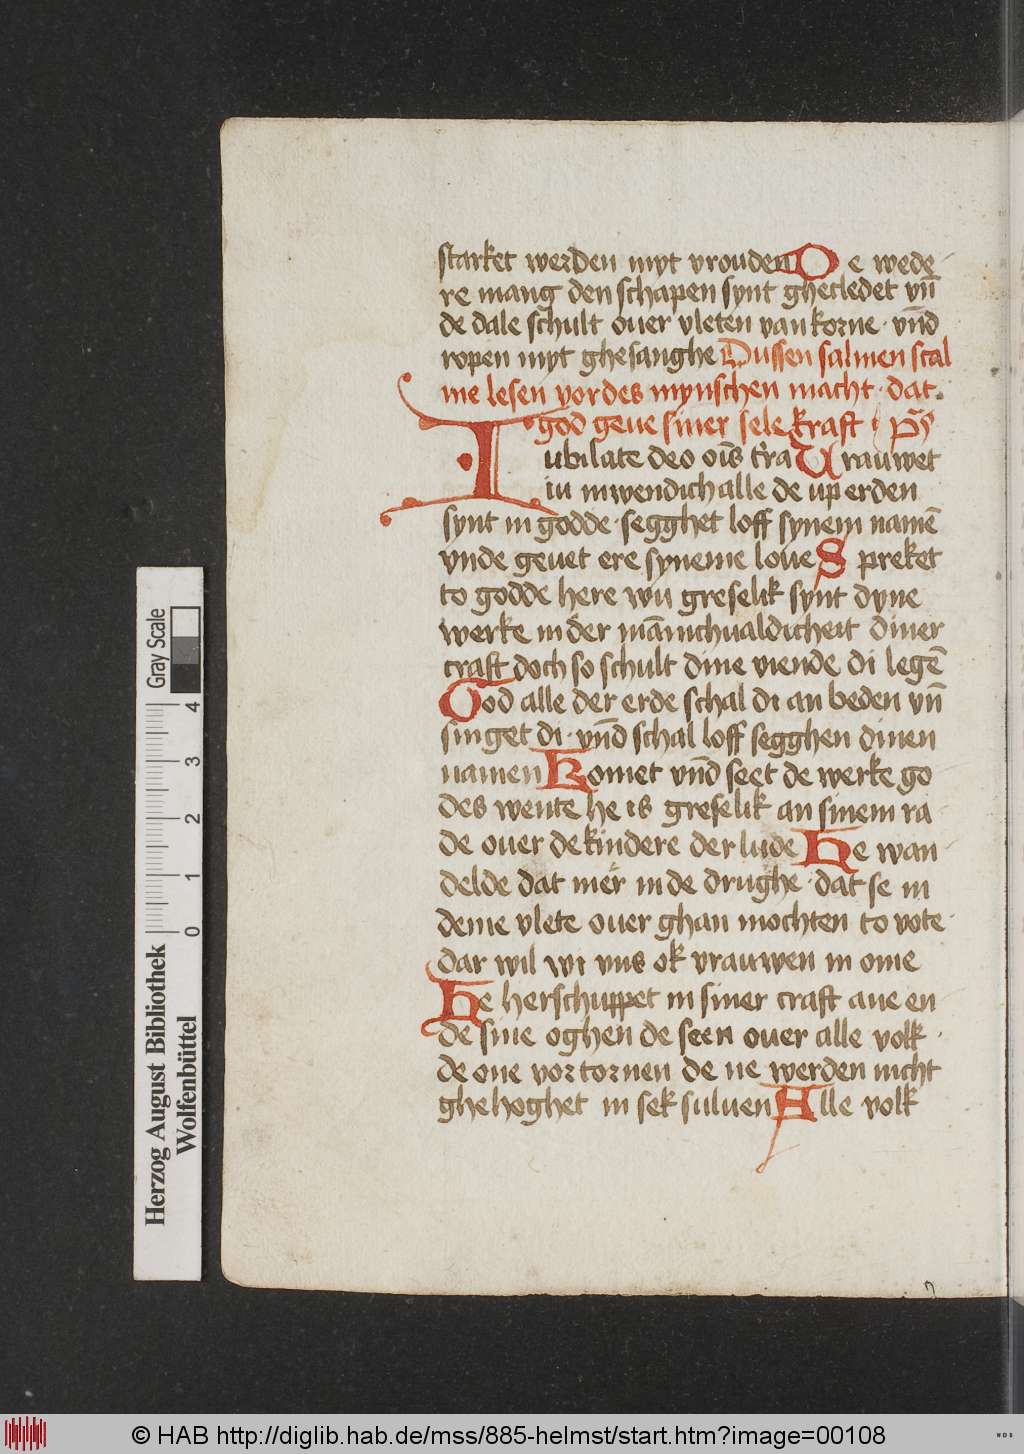 starket werden myt vrouden De wede
re mang den schapen synt ghecledet vn̄
de dale schult ouer vleten van korne · vn̄d
ropen myt ghesanghe Dussen salmen scal
me lesen vor des mynschen macht · dat
god geue siner sele kraft · p̄s
Iubilate deo oīs t̄ra Vrauwet
iu inwendich alle de up erden
synt in godde · segghet loff synem namē
vnde geuet ere syneme loue Spreket
to godde here wu greselik synt dyne
werke in der mānichualdicheit diner
craft doch so schult dine viende di legē
God alle der erde schal di an beden vn̄
singet di · vn̄d schal loff segghen dinen
namen Komet vn̄d seet de werke go
des wente he is greselik an sinem ra
de ouer de kindere der lude He wan
delde dat mer in de drughe · dat se in
deme vlete ouer ghan mochten to vote ·
dar wil wi vns ok vrauwen in ome
He herschuppet in siner craft ane en
de sine oghen de seen ouer alle volk ·
de one vortornen de ne werden nicht
ghehoghet in sek suluen Alle volk
Herzog August Bibliothek
Wolfenbüttel
0 1 2 3 4
Gray Scale
© HAB http://diglib.hab.de/mss/885-helmst/start.htm?image=00108